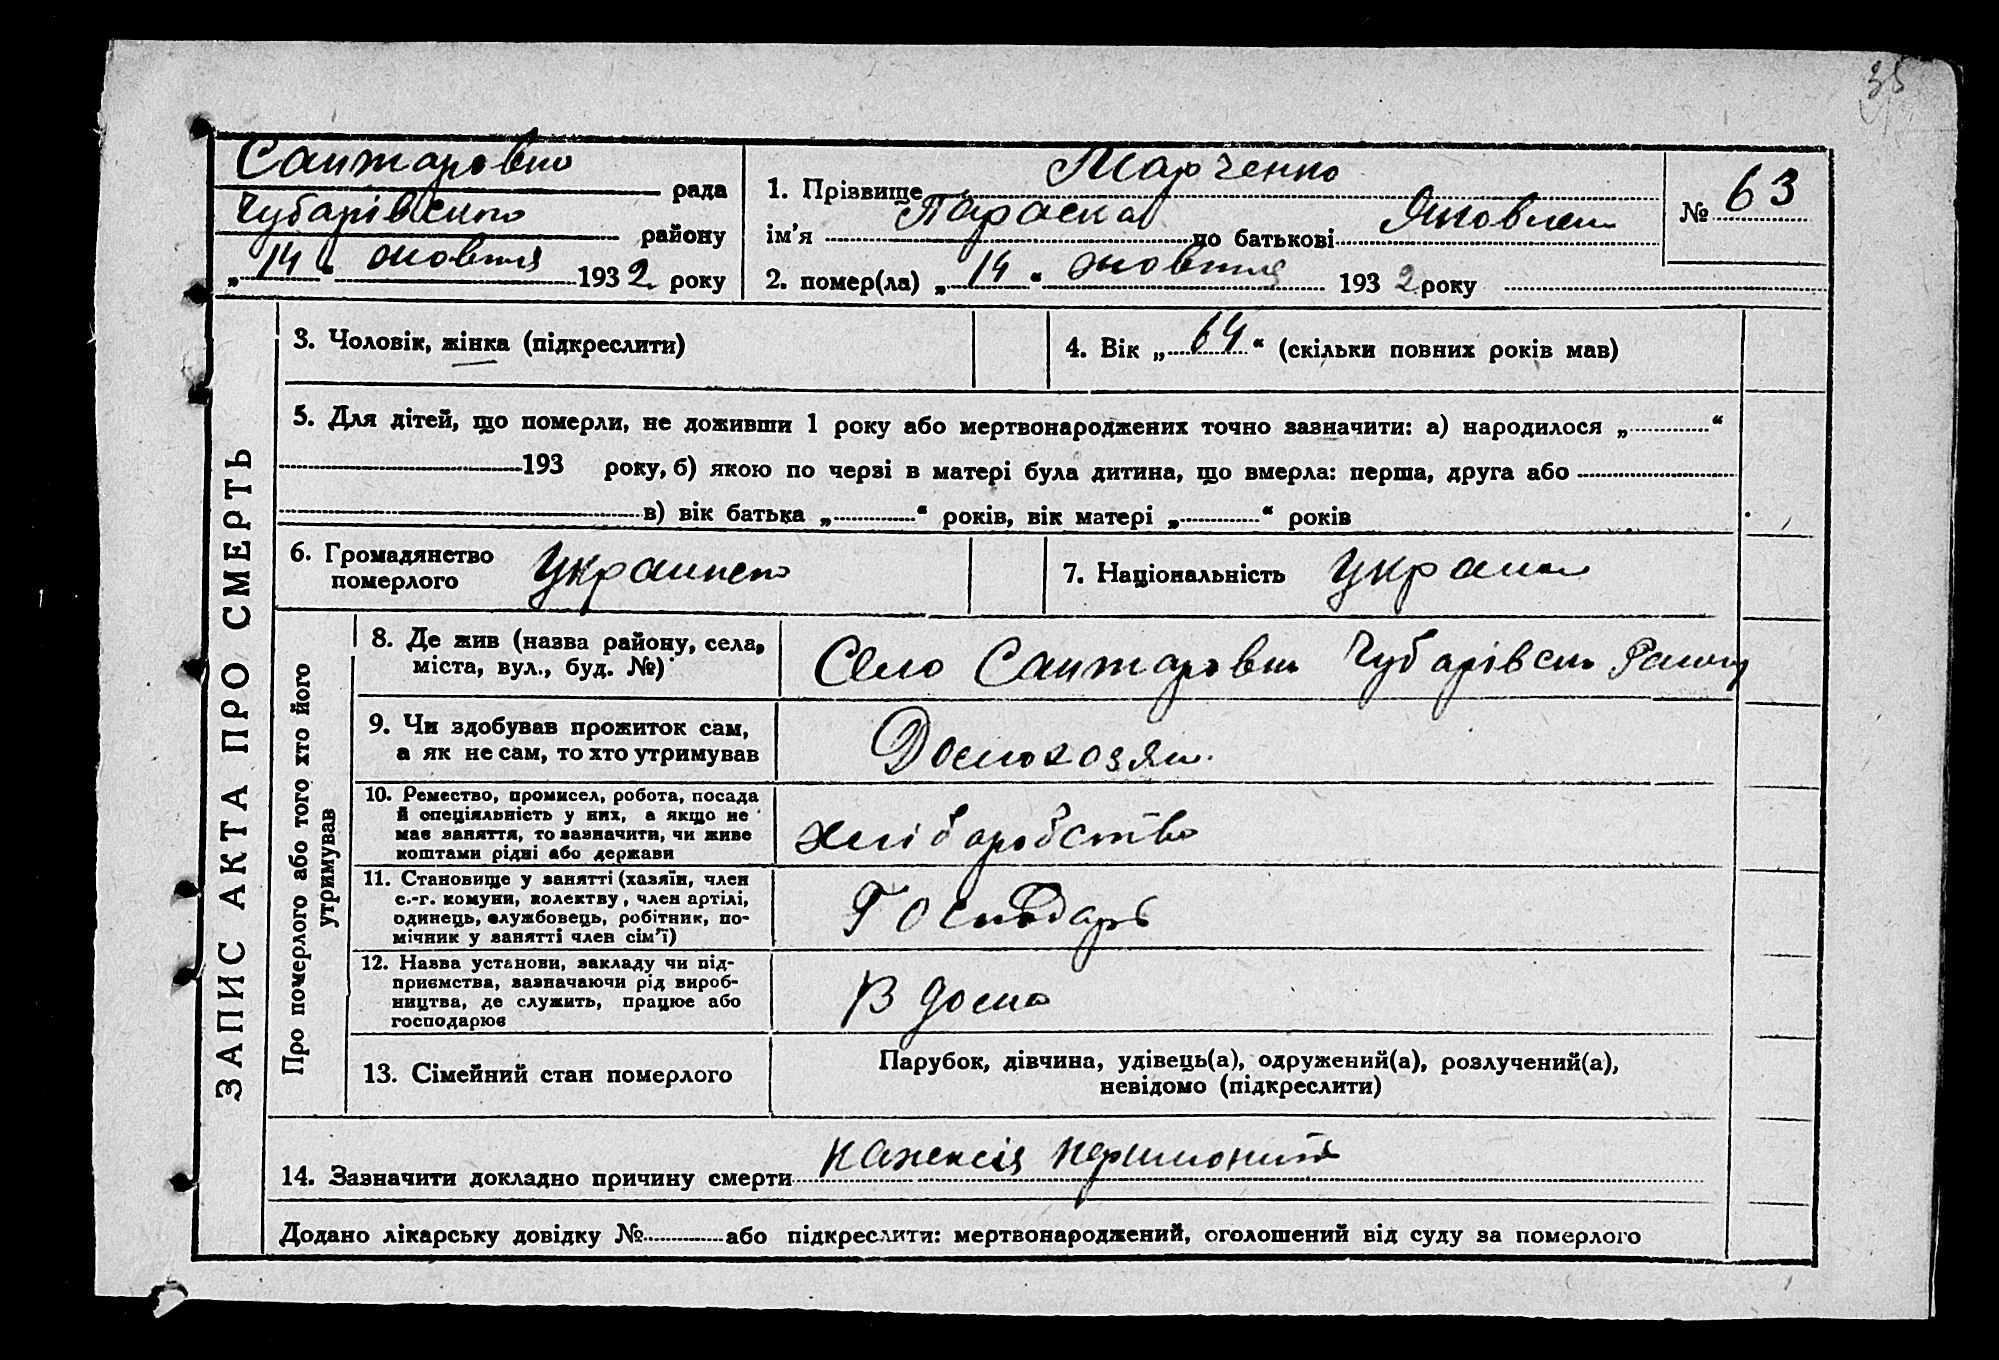 35
Сантаровко рада
Чубарівського району
„ 14 “ жовтня 1932 року
1. Прізвище Марченко
ім'я Параска по батькові Яковлен
2. помер(ла) „ 14 “ жовтня 1932 року
№ 63
ЗАПИС АКТА ПРО СМЕРТЬ
3. Чоловік, жінка (підкреслити)
4. Вік „ 64 “ (скільки повних років мав)
5. Для дітей, що померли, не доживши 1 року або мертвонароджених точно зазначити: а) народилося „ “
193 року, б) якою по черзі в матері була дитина, що вмерла: перша, друга або
в) вік батька „ “ років, вік матері „ “ років
6. Громадянство
померлого
7. Національність
Про померлого або того хто його
утримував
8. Де жив (назва району, села,
міста, вул., буд. №)
Село Чубарівськ
9. Чи здобував прожиток сам,
а як не сам, то хто утримував
Домохозяй
10. Ремество, промисел, робота, посада
й спеціяльність у них, а якщо не
має заняття, то зазначити, чи живе
коштами рідні або держави
хліборобство
11. Становище у занятті (хазяїн, член
с.-г. комуни, колектву, член артілі,
одинець, службовець, робітник, по-
мічник у занятті член сім'ї)
Господарь
12. Назва установи, закладу чи під-
приємства, зазначаючи рід вироб-
ництва, де служить, працює або
господарює
В дома
13. Сімейний стан померлого
Парубок, дівчина, удівець(а), одружений(а), розлучений(а),
невідомо (підкреслити)
14. Зазначити докладно причину смерти
Додано лікарську довідку № або підкреслити: мертвонароджений, оголошений від суду за померлого